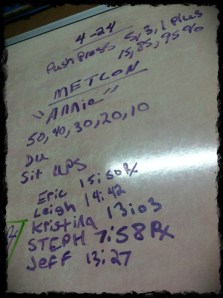 4-24
Push Press 5,3,1 plus
75,85,95%
METCON
"Annie"
50,40,30,20,10
Du
Sit ups
Eric 15:50Rx
Leigh 14:42
Kristina 13:03
STEPH 7:58 Rx
Jeff 13:27